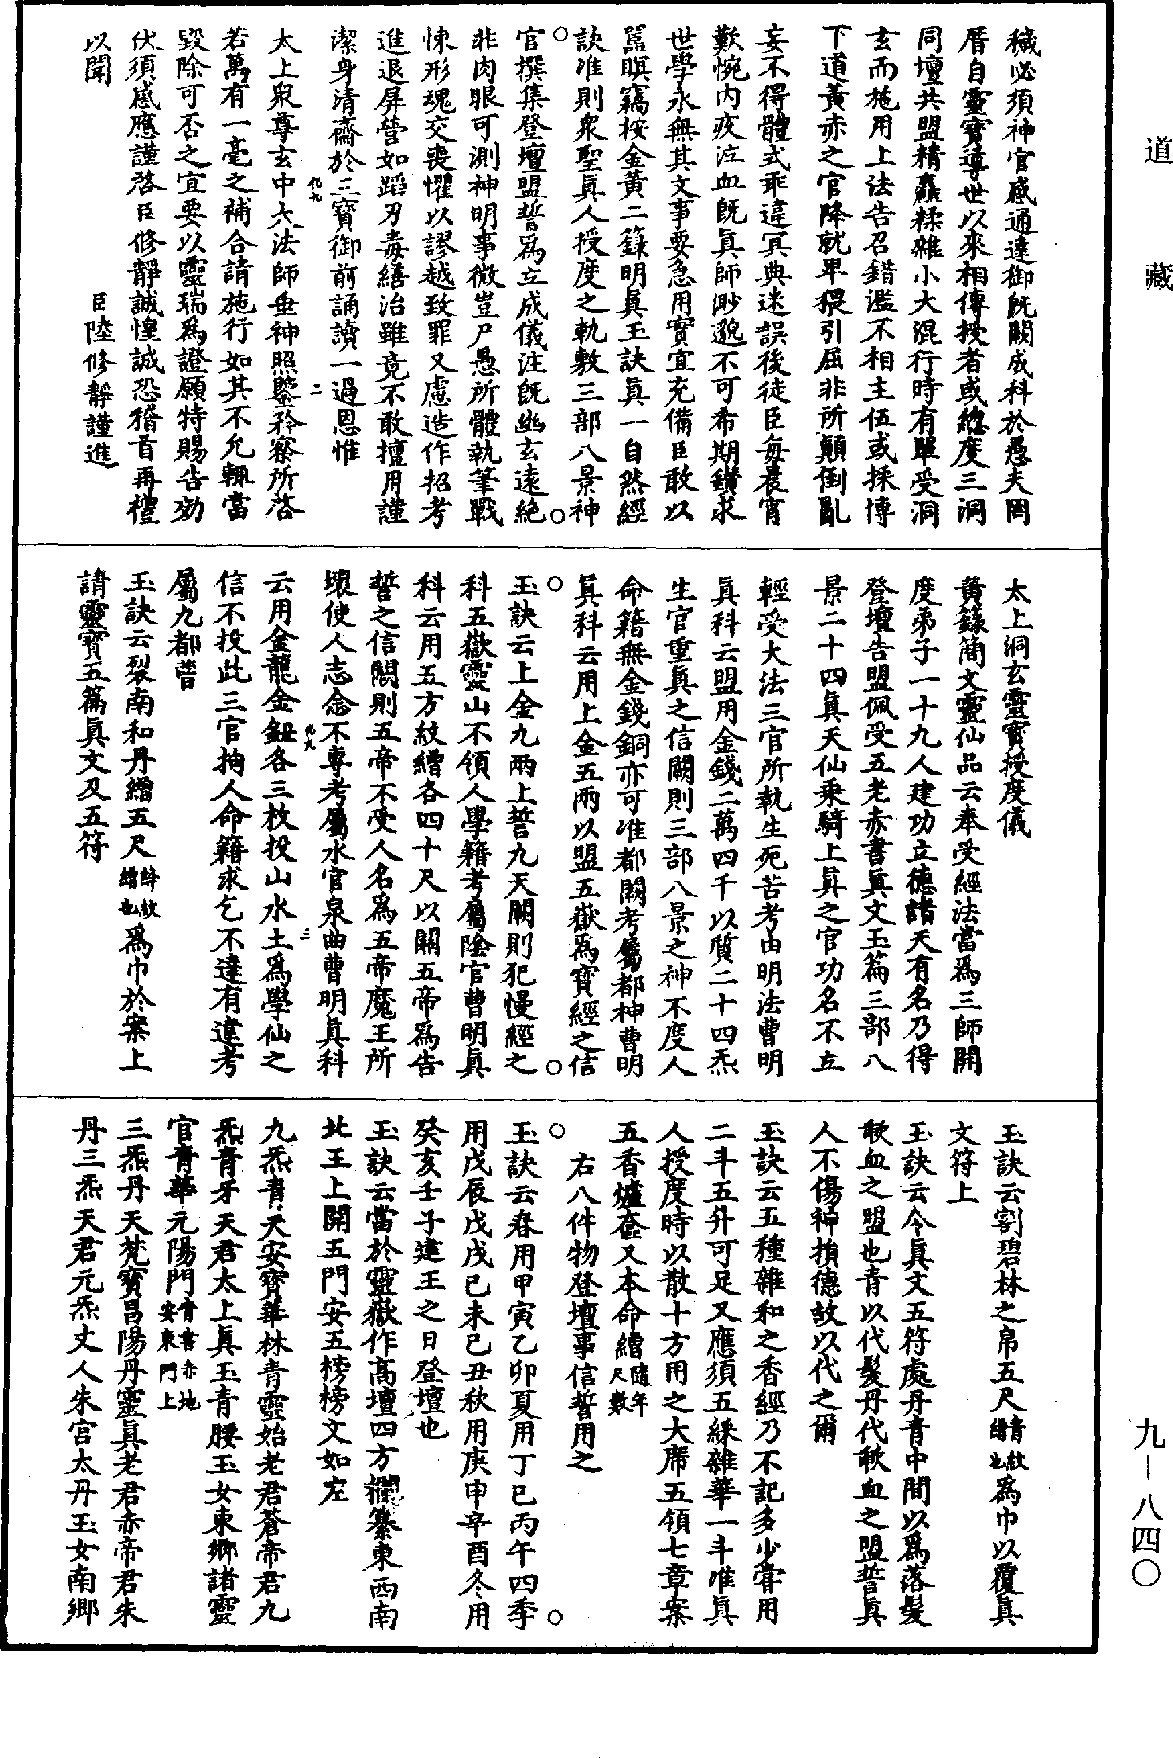 道藏
穢必須神官感通達御旣闕成科於愚夫罔
厝自靈寶導世以來相傳授者或總度三洞
同壇共盟精麤糅雜小大混行時有單受洞
玄而施用上法告召錯濫不相主伍或採博
下道黃赤之官降就卑猥引屈非所顛倒亂
妄不得體式乖違冥典迷誤後徒臣每晨宵
歎惋內疚泣血旣眞師渺邈不可希期鑽求
世學永無其文事要急用實宜充備臣敢以
嚚瞑竊按金黃二籙明眞玉訣眞一自然經
訣准則衆聖眞人授度之軌敷三部八景神
官撰集登壇盟誓爲立成儀注旣幽玄遠絕
非肉眼可測神明事微豈尸愚所體執筆戰
悚形魂交喪懼以謬越致罪又慮造作招考
進退屏營如蹈刃毒繕治雖竟不敢擅用謹
潔身清齋於三寶御前誦讀一過恩惟
太上衆尊玄中大法師垂神照鑒矜察所啓
若萬有一毫之補合請施行如其不允輒當
毀除可否之宜要以靈瑞爲證願特賜告効
伏須感應謹啓臣修靜誠惶誠恐稽首再禮
以聞　臣陸修靜謹進
太上洞玄靈寶授度儀
黃籙簡文靈仙品云奉受經法當爲三師開
度弟子一十九人建功立德諸天有名乃得
登壇告盟佩受五老赤書眞文玉篇三部八
景二十四眞天仙乘騎上眞之官功名不立
輕受大法三官所執生死苦考由明法曹明
眞科云盟用金錢二萬四千以質二十四炁
生官重眞之信闕則三部八景之神不度人
命籍無金錢銅亦可准都闕考屬都神曹明
眞科云用上金五兩以盟五嶽爲寶經之信
玉訣云上金九兩上誓九天闕則犯慢經之
科五嶽靈山不領人學籍考屬陰官曹明眞
科云用五方紋繒各四十尺以關五帝爲告
誓之信闕則五帝不受人名爲五帝魔王所
壞使人志念不專考屬水官泉曲曹明眞科
云用金龍金鈕各三枚投山水土爲學仙之
信不投此三官拘人命籍求乞不達有違考
屬九都曹
玉訣云裂南和丹繒五尺絳紋繒也爲巾於案上
請靈寶五篇眞文及五符
玉訣云割碧林之帛五尺青紋繒也爲巾以覆眞
文符上
玉訣云令眞文五符處丹青中間以爲落髮
歃血之盟也青以代髮丹代歃血之盟誓眞
人不傷神損德故以代之爾
玉訣云五種雜和之香經乃不記多少當用
二斗五升可足又應須五綵雜華一斗准眞
人授度時以散十方用之大席五領七章案
五香爐奩又本命繒隨年尺數
右八件物登壇事信誓用之
玉訣云春用甲寅乙卯夏用丁巳丙午四季
用戊辰戊戌己未己丑秋用庚申辛酉冬用
癸亥壬子建王之日登壇也
玉訣云當於靈嶽作高壇四方欄纂東西南
北王上開五門安五榜榜文如左
九炁青天安寶華林青靈始老君蒼帝君九
炁青牙天君太上眞玉青腰玉女東鄉諸靈
官青華元陽門青書赤地安東門上
三炁丹天梵寶昌陽丹靈眞老君赤帝君朱
丹三炁天君元炁丈人朱宮太丹玉女南鄉
九—八四〇